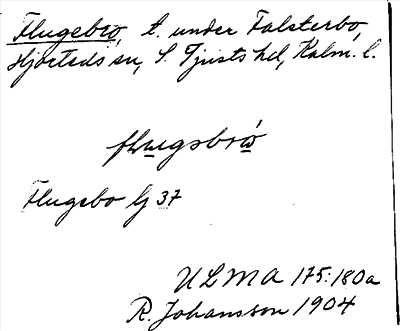 Flugebro, t. under Falsterbo,
Hjorteds sn, S. Tjusts hd, Kalm. l.
flugsbró
Flugebo Gj 37
ULMA 175:180a
R. Johansson 1904